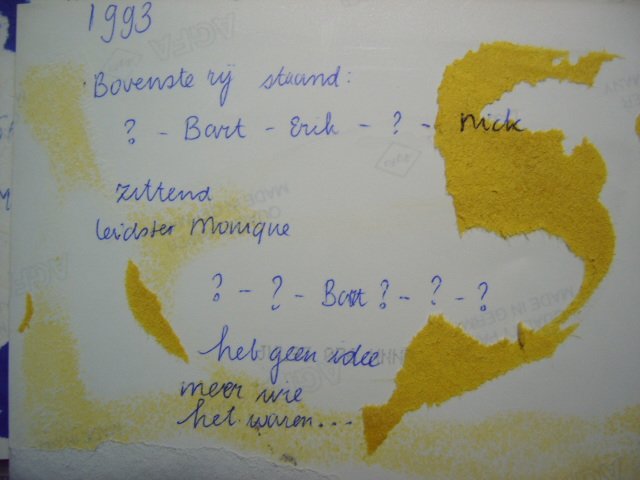 1993
Bovenste rij staand:
? - Bart - Erik - ? - nick
zittend
leidster Monique
? - ? - Bart ? - ? - ?
heb geen idee
meer wie
het waren...
AGFA
MADE IN GERM